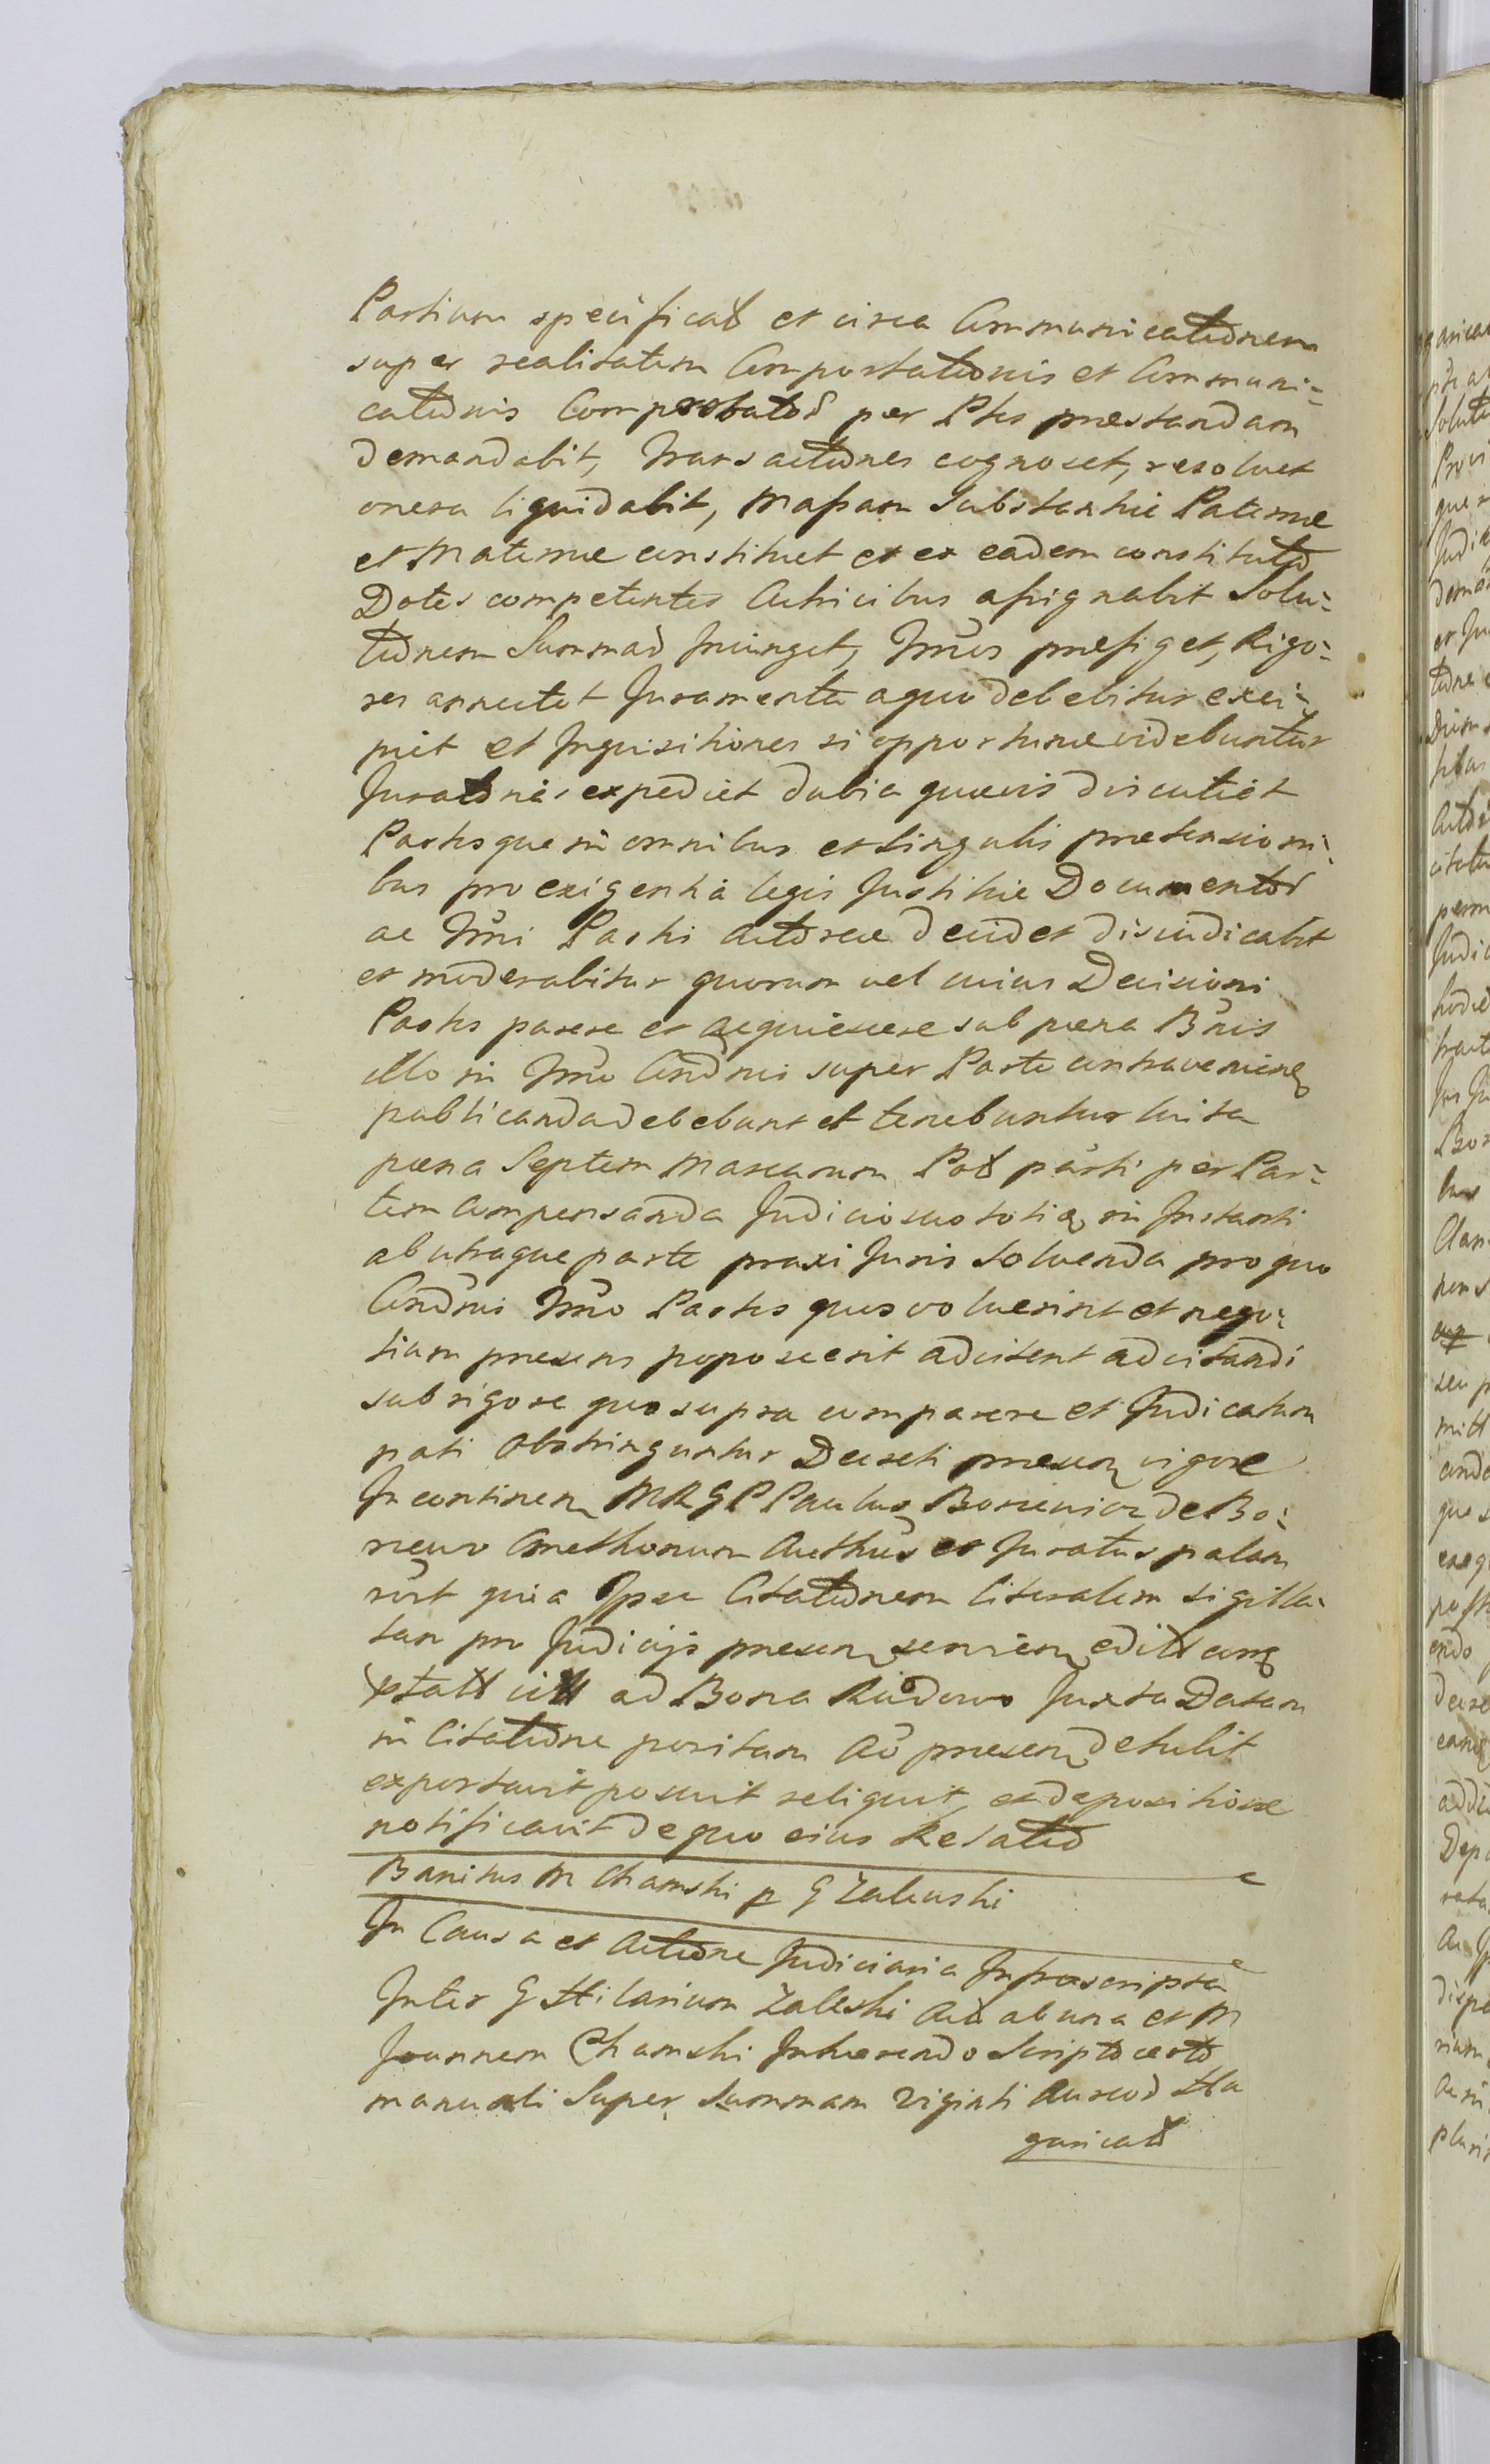 Partium specificat et circa Communicationem
super realitatem Comportationis et Communi=
cationis Comprobatos per Ptes praestandam
demandabit, Transactiones cognoscet, resoluet
onera liquidabit, Massam Substantiae Paternae
et Maternae constituet et ex eadem constituta
Dotes competentes Actricibus assignabit Solu=
tionem Summae Iniunget, Tnus praefiget, Rigo=
res annectet Juramenta a quo debebitur exci=
piet et Inquisitiones si opportunae videbuntur
Juratorias expediet dubia quaevis discutiet
Partesque in omnibus et singulis praetensioni=
bus pro exigentia legis Justitiae Documentor
ac Tni Parti Actoreae decidet disiudicabit
et moderabitur quorum vel cuius Decisioni
Partes parere et acquiescere sub poena Bnis
illo in Tno Condnis super Parte contravenien
publicanda debebunt et tenebuntur luita
poena Septem Marcarum Pol parti per Par=
tem compensanda Judicio suo totiq in Instanti
ab utraque parte praxi Juris Soluenda pro quo
Condnis Tno Partes quos voluerint et nego=
tium praesens poposcerit adcitent adcitandi
sub rigore quo supra comparere et Judicatum
pati Obstringuntur Decreti praesen vigore
In continen MRGP Paulus Boniewicz de Bo=
niewo Cmethonum Aucthus et Juratus palam
rcrt quia Ipse Citationem literalem sigilla=
tam pro Judicijs praesen servien editt conq
ptatt citt ad Bona Rudowo Juxta Datam
in Citatione positam Ao praesen detulit
exportavit posuit reliquit, et de positione
notificavit de quo eius Relatio
Banitus M Chamski p G Zaleski
In Causa et Actione Judiciaria Infrascripta
Inter G Hilarium Zaleski Act ab una et M
Joannem Chamski Inhaerendo Scripto certo
manuali Super Summam Viginti Aureos Hu
garicat